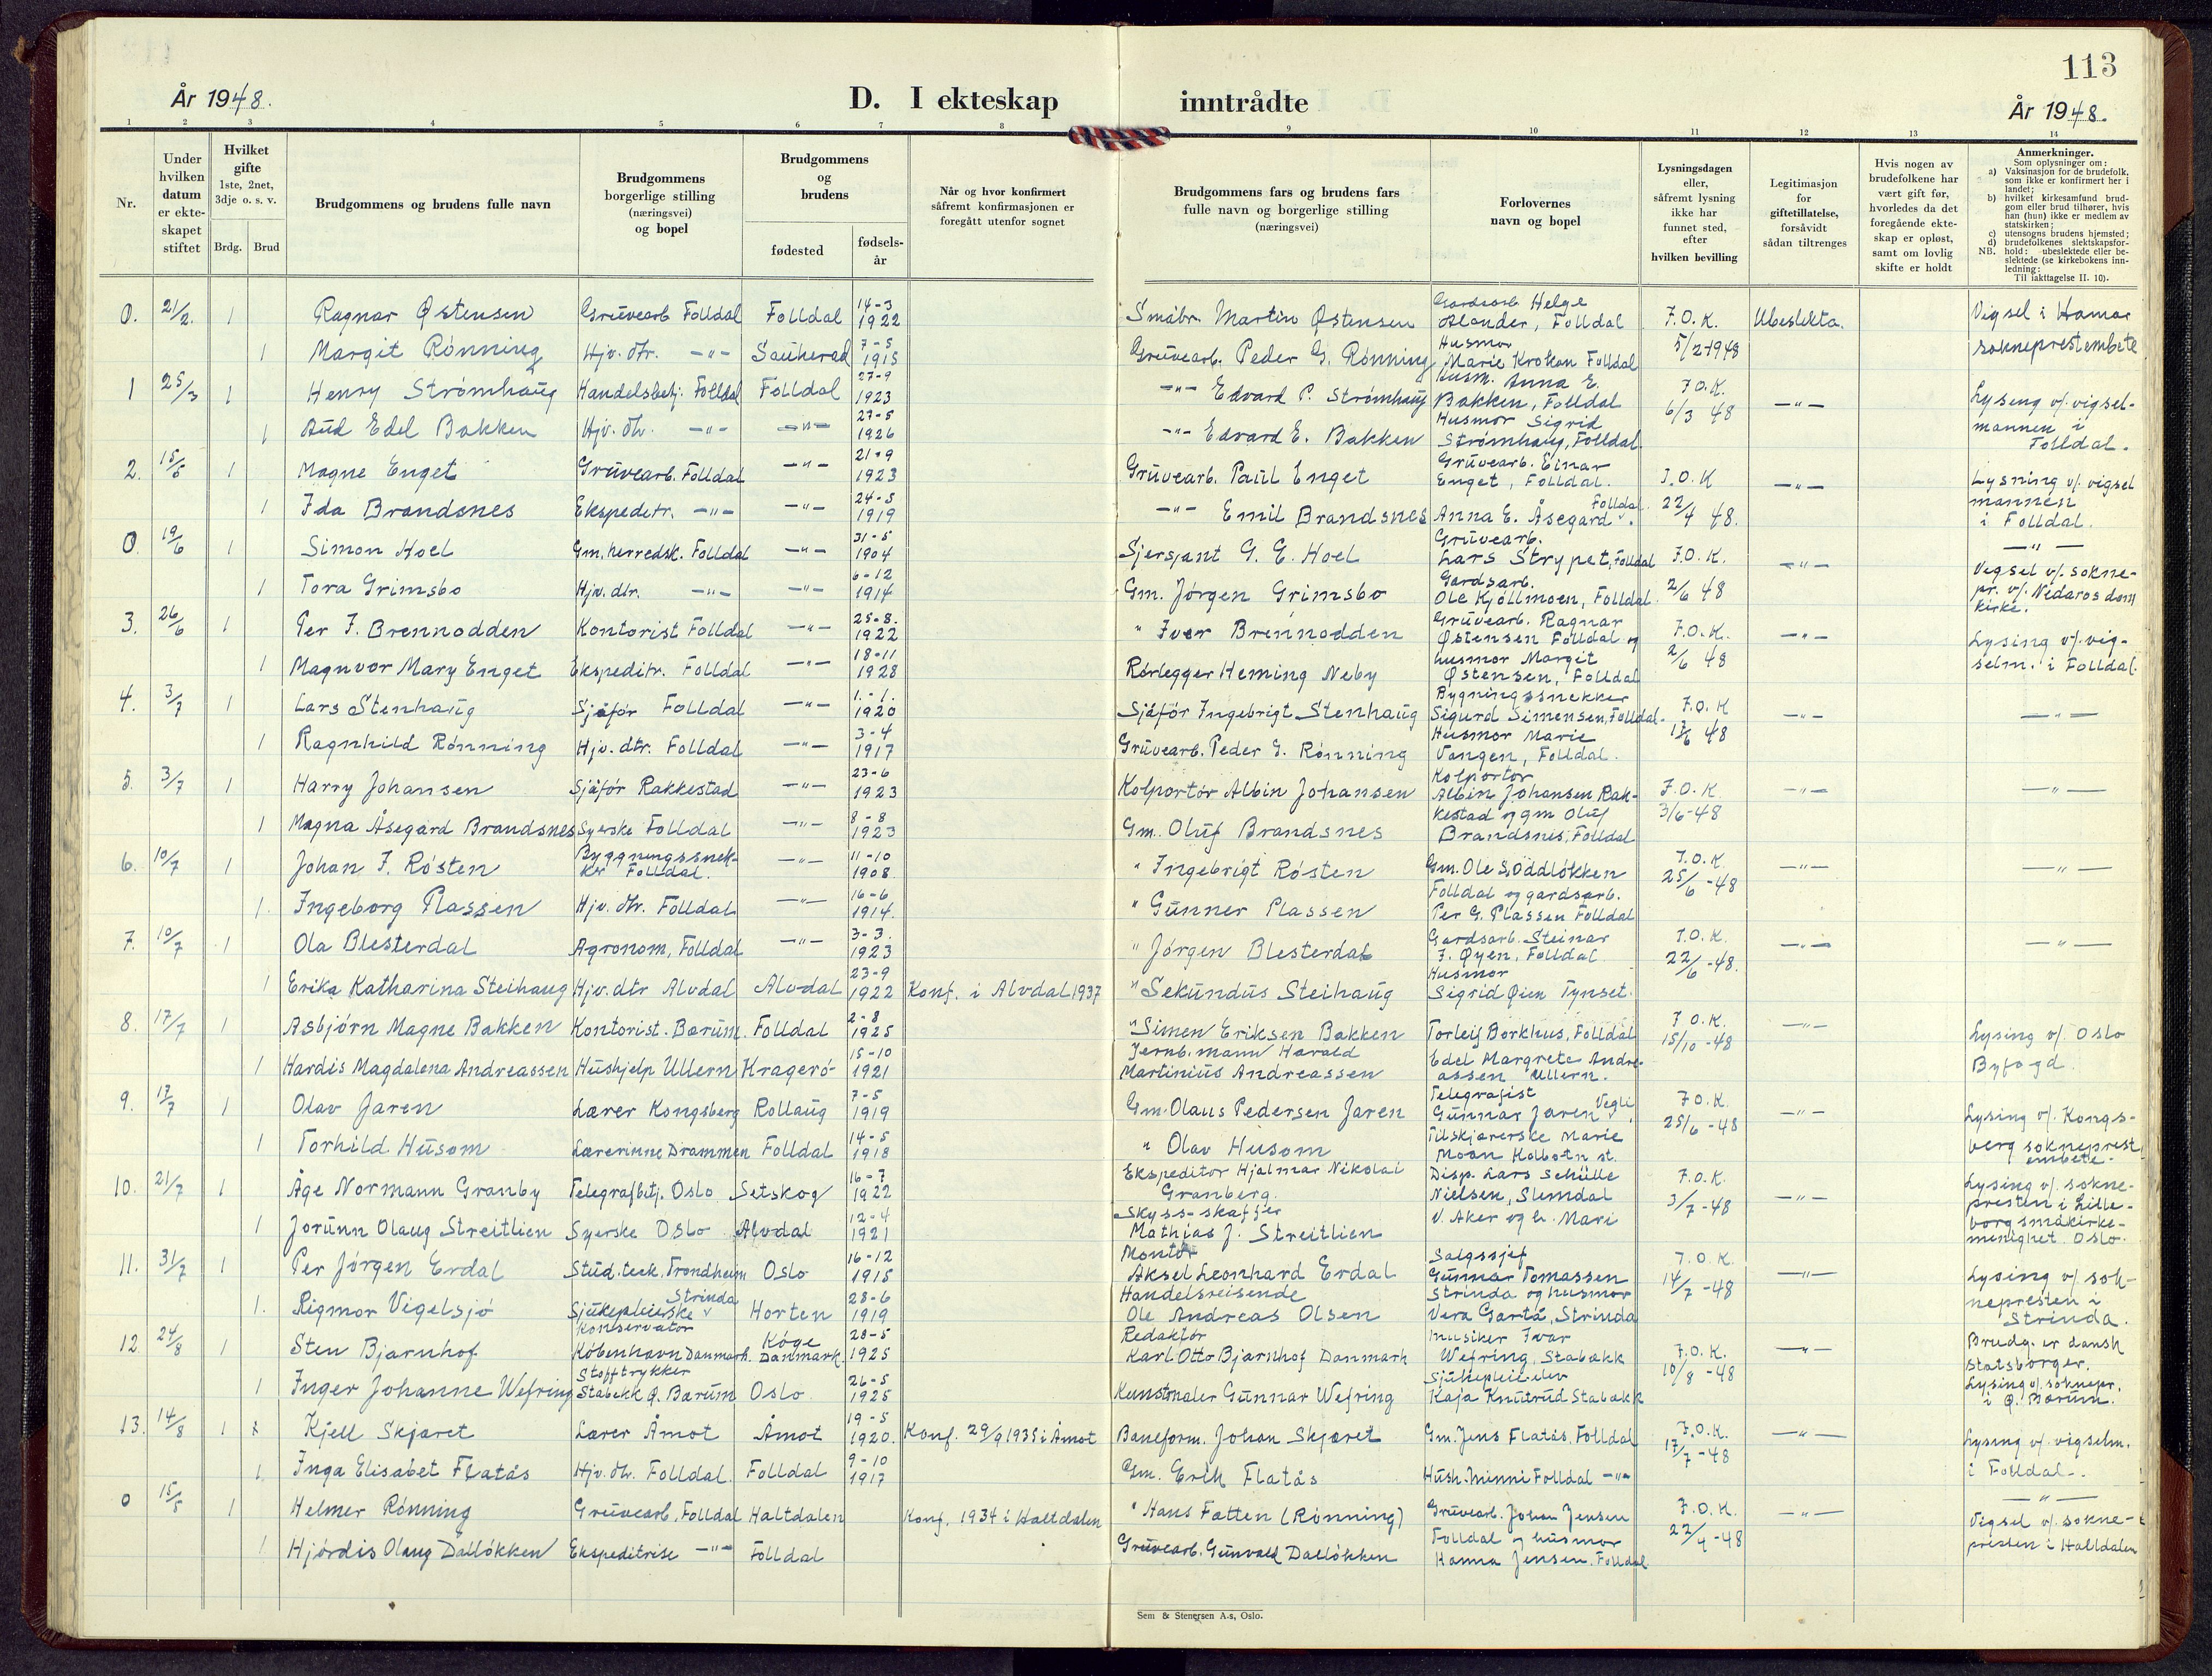 113
År 1948.
D. I ekteskap inntrådte
År 1948.
1 2 3 4 5 6 7 8 9 10 11 12 13 14
Nr.
Under hvilken datum er ekte-skapet stiftet
Hvilket gifte 1ste, 2net, 3dje o. s. v.
Brdg. Brud
Brudgommens og brudens fulle navn
Brudgommens borgerlige stilling (næringsvei) og bopel
Brudgommens og brudens
fødested
fødsels-år
Når og hvor konfirmert såfremt konfirmasjonen er foregått utenfor sognet
Brudgommens fars og brudens fars fulle navn og borgerlige stilling (næringsvei)
Forlovernes navn og bopel
Lysningsdagen eller, såfremt lysning ikke har funnet sted, efter hvilken bevilling
Legitimasjon for giftetillatelse, forsåvidt sådan tiltrenges
Hvis nogen av brudefolkene har vært gift før, hvorledes da det foregående ekte-skap er opløst, samt om lovlig skifte er holdt
Anmerkninger.
Som oplysninger om:
a) Vaksinasjon for de brudefolk, som ikke er konfirmert her i landet;
b) hvilket kirkesamfund brud-gom eller brud tilhører, hvis han (hun) ikke er medlem av statskirken;
c) utensogns brudens hjemsted;
d) brudefolkenes slektskapsfor-hold: ubeslektede eller be-slektede (se kirkebokens inn-ledning:
NB. Til iakttagelse II. 10).
0. 21/2. 1 Ragnar Østensen Gruvearb Folldal Folldal 14-3 1922 Småbr. Martin Østensen Gardsarb Helge Alander, Folldal F.O.K. 5/2-1948 Ubeslekta. Vigsel i Hamar
1 Margit Rønning Hjv. dtr. -"- Sauherad 7-5 1915 Gruvearb. Peder G. Rønning Husmor Marie Krokan Folldal sokneprestembete
1 25/3 1 Henry Strømhaug Handelsbetj. Folldal Folldal 27-9 1923 -"- Edvard P. Strømhaug Husm. Anna E. Bakken, Folldal F.O.K. 6/3 48 -"- Lysing v/. vigsel-
1 Aud Edel Bakken Hjv. dtr. -"- -"- 27-5 1926 -"- Edvard E. Bakken Husmor Sigrid Strømhaug, Folldal mannen i Folldal.
2. 15/5 1 Magne Enget Gruvearb. Folldal -"- 21-9 1923 Gruvearb. Paul Enget Gruvearb. Einar Enget, Folldal. F.O.K 22/4 48. -"- Lysning v/. vigsel
1 Ida Brandsnes Ekspeditr. -"- -"- 24-5 1919 -"- Emil Brandsnes Anna E. Åsegard Folldal. mannen i Folldal.
0 19/6 1 Simon Hoel Gm. herredsk. Folldal -"- 31-5 1904 Sjersjant G. E. Hoel Gruvearb. Lars Strypet, Folldal F.O.K. 2/6 48 -"- -"-
1 Tora Grimsbo Hjv. dtr. -"- -"- 6-12 1914 Gm. Jørgen Grimsbo Gardsarb. Ole Kjøllmoen, Folldal. Vegsel v/. sokne-pr. v/. Nidaros dom kirke.
3. 26/6 1 Per I. Brennodden Kontorist Folldal -"- 25-8. 1922 " Iver Brennodden Gruvearb. Ragnar Østensen Folldal og F.O.K. 2/6 48 -"- Lysing v/. vig-
1 Magnvor Mary Enget Ekspeditr. Folldal -"- 18-11 1928 Rørlegger Heming Neby husmor Margit Østensen, Folldal selm. i Folldal.
4. 3/7 1 Lars Stenhaug Sjåfør Folldal -"- 1.-1. 1920 Sjåfør Ingebrigt Stenhaug Bygningssnekker Sigurd Simensen, Folldal. F.O.K 17/6 48 -"- -"-
1 Ragnhild Rønning Hjv. dtr. Folldal -"- 3-4 1917 Gruvearb. Peder G. Rønning Husmor Marie Vangen, Folldal.
5. 3/7 1 Harry Johansen Sjåfør Rakkestad -"- 23-6 1923 Kolportør Albin Johansen Kolportør Albin Johansen Rak-kestad og gm Oluf F.O.K. 3/6-48 -"- -"-
1 Magna Åsegård Brandsnes Syerske Folldal -"- 8-8 1923 Gm. Oluf Brandsnes Brandsnes, Folldal
6. 10/7 1 Johan I. Røsten Byggningssnek-ker Folldal. -"- 11-10 1908 " Ingebrigt Røsten Gm. Ole S. Oddløkken F.O.K. 25/6-48 -"- -"-
1. Ingeborg Plassen Hjv. dtr. Folldal -"- 16-6 1914. " Gunner Plassen Folldal og gardsarb. Per G. Plassen Folldal
7. 10/7 1 Ola Blesterdal Agronom, Folldal -"- 3-3. 1923 " Jørgen Blesterdal Gardsarb. Steinar I. Øyen, Folldal F.O.K. 22/6-48. -"- -"-
1 Erika Katharina Steihaug Hjv. dtr Alvdal Alvdal 23-9 1922 Konf. i Alvdal 1937 " Sekundus Steihaug Husmor Sigrid Øien Tynset.
8. 17/7 1 Asbjørn Magne Bakken Kontorist. Bærum. Folldal 2-8 1925 " Simen Eriksen Bakken Torleif Borkhus, Folldal F.O.K. 15/10-48 -"- Lysing v/. Oslo
1 Hardis Magdalena Andreassen Hushjelp Ullern Kragerø 15-10 1921 Jernb. mann Harald Martinius Andreassen Edel Margrete Andre-assen Ullern. Byfogd.
9. 17/7 1 Olav Jaren Lærer Kongsberg Rollaug 7-5 1919 Gm. Olaus Pedersen Jaren Telegrafist Gunnar Jaren Vegli. F.O.K. 25/6-48 -"- Lysing v/. Kongs-
1 Torhild Husom Lærerinne Drammen Folldal 14-5 1918 " Olav Husom Tilskjærerske Marie Moan Kolbotn st. berg sokneprest embete.
10. 21/7 1 Åge Normann Granby Telegrafbetj. Oslo Setskog 16-7 1922 Ekspeditør Hjalmar Nikolai Granberg. Disp. Lars Schülle Nielsen, Slemdal F.O.K. 3/7-48 -"- Lysing v/. sokne-presten i Lille-
1 Jorunn Olaug Streitlien Syerske Oslo Alvdal 12-4 1921 Skyss-skaffer Mathias J. Streitlien V. Aker og Mari borg småkirke-menighet. Oslo.
11. 31/7 1 Per Jørgen Erdal Stud. tek. Trondheim Oslo 16-12 1915 Montør Aksel Leonhard Erdal Salgssjef Gunnar Tomassen F.O.K. 14/7-48 -"- Lysing v/. sok-
1. Rigmor Vigelsjø Sjukepleierske Strinda Horten 28-6 1919 Handelsreisende Ole Andreas Olsen Strinda og husmor Vera Gartå, Strinda nepresten i Strinda.
12 24/8 1 Sten Bjarnhof Konservator København Danmark. Køge Danmark. 28-5 1925 Redaktør Karl Otto Bjarnhof Danmark Musiker Ivar Wefring, Stabækk F.O.K. 10/8-48 -"- Brudg. er dansk statsborger.
1 Inger Johanne Wefring Stofftrykker Stabekk Ø. Bærum Oslo. 26-5 1925 Kunstmaler Gunnar Wefring Sjukepleieelev Kaja Knutrud Stabækk Lysing v/. soknepr. i Ø. Bærum.
13. 14/8 1 Kjell Skjæret Lærer Åmot Åmot 19-5 1920. Konf. 29/9 1935 i Åmot Baneform. Johan Skjæret Gm. Jens Flatås, Folldal F.O.K. 17/7-48 -"- Lysing v/. vigselm.
1. Inga Elisabet Flatås Hjv. dtr. Folldal. Folldal 9-10 1917 Gm. Erik Flatås Hush. Minni Folldal -"- i Folldal.
0 15/5 1 Helmer Rønning Gruvearb. Folldal Haltdalen Konf. 1934 i Haltdalen " Hans Fatten (Rønning) Gruvearb. Johan Jensen F.O.K. 22/4-48 -"- -"- Vigsel v/. sokne-
1 Hjørdis Olaug Dalløkken Ekspeditrise -"- Folldal Gruvearb. Gunvald Dalløkken Folldal og husmor Hanna Jensen. Folldal presten i Haltdalen
Sem & Stenersen A.s, Oslo.